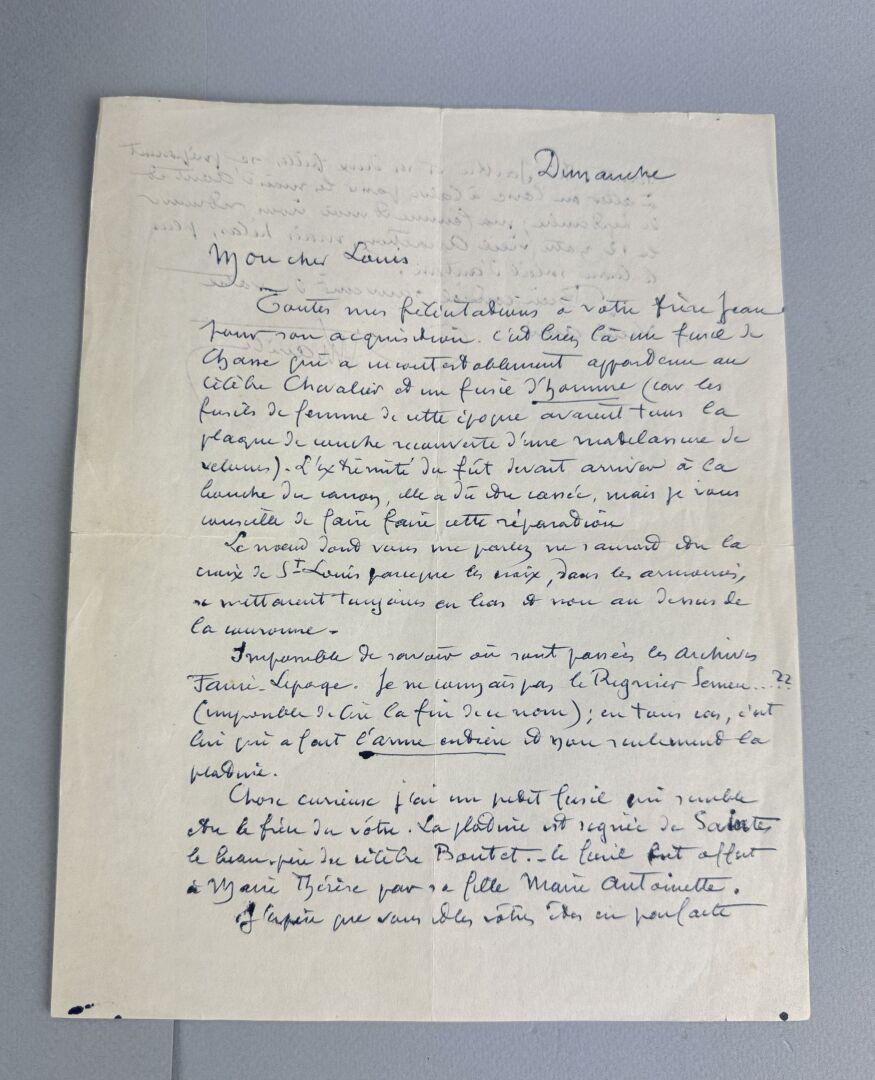 Dimanche
Mon cher Louis
Toutes mes félicitations à votre frère Jean
pour son acquisition. c'est bien là un fusil de
Chasse qui a incontestablement appartenu au
célèbre Chevalier et un fusil d'homme (car les
fusils de femme de cette époque avaient tous la
plaque de couche recouverte d'une matelassure de
velours). L'extrémité du fût devait arriver à la
bouche du canon, elle a dû être cassée, mais je vous
conseille de faire faire cette réparation
Le nœud dont vous me parlez ne saurait être la
croix de St Louis parceque les croix, dans les armoiries,
se mettaient toujours en bas et non au dessus de
la couronne -
Impossible de savoir où sont passées les archives
Fauré-Lepage. Je ne connais pas le Regnier Semeu...??
(impossible de lire la fin de ce nom) ; en tous cas, c'est
lui qui a fait l'arme entière et non seulement la
platine.
Chose curieuse j'ai un petit fusil qui semble
être le frère du vôtre. La platine est signée de Saintes
le beau-père du célèbre Boutet. - le fusil fut offert
à Marie Thérèse par sa fille Marie Antoinette.
J'espère que vous et les vôtres êtes en parfaite